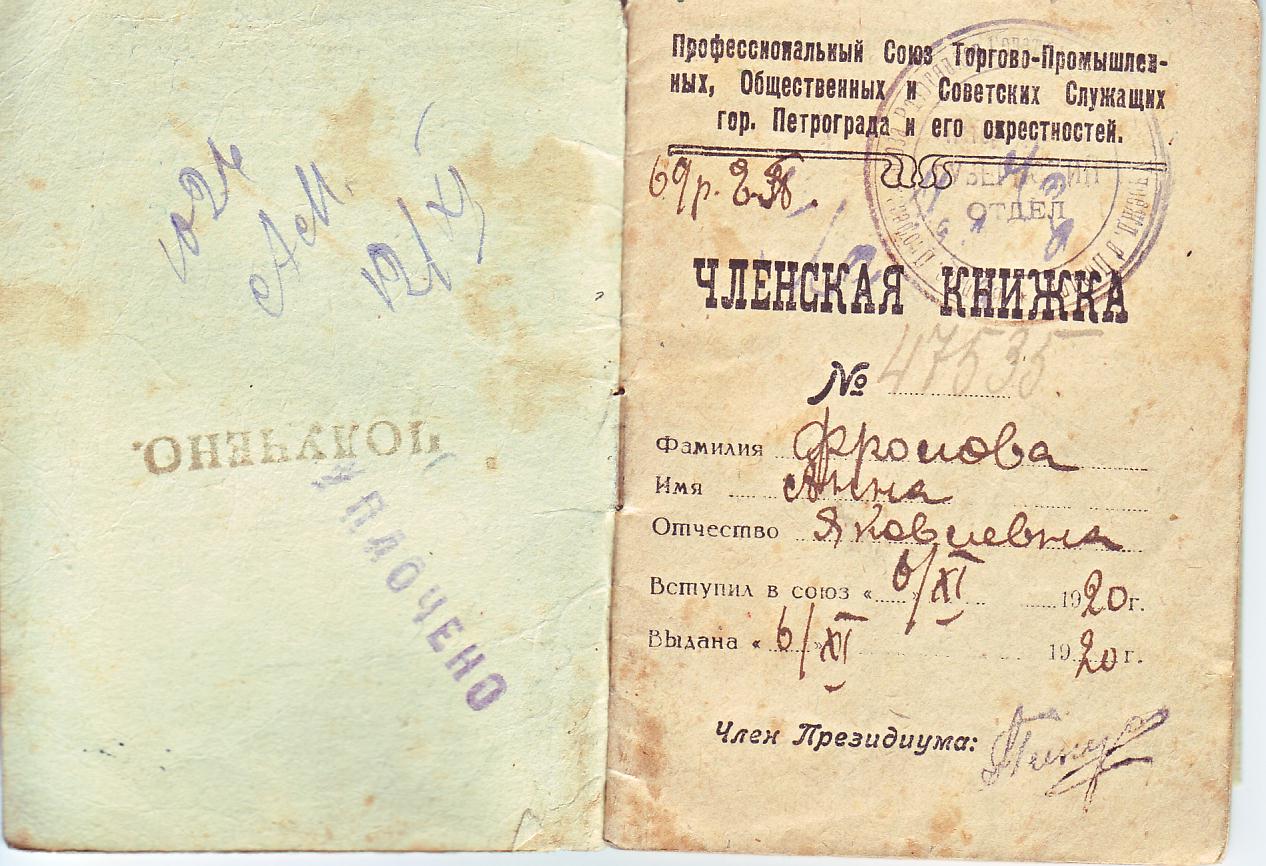 12/XI
ПОЛУЧЕНО.
УПЛОЧЕНО
Профессиональный Союз Торгово-Промышлен-
ных, Общественных и Советских Служащих
гор. Петрограда и его окрестностей.
ОТДЕЛ
ЧЛЕНСКАЯ КНИЖКА
№ 47535
Фамилия Фролова
Имя Анна
Отчество Яковлевна
Вступил в союз « 6/XI 1920 г.
Выдана « 6/XI 1920 г.
Член Президиума: